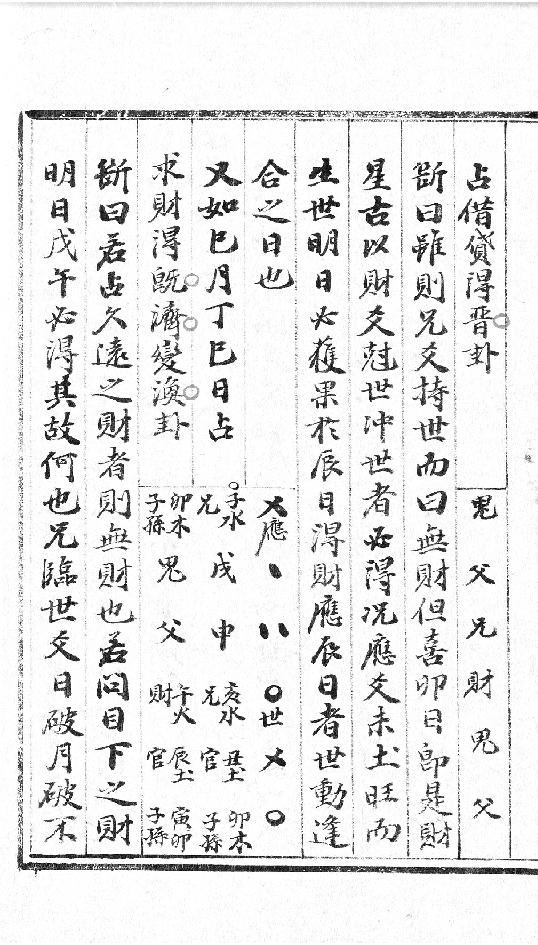 占借貸得晋卦
鬼父兄財鬼父
斷曰雖則兄爻持世而曰無財但喜卯日卽是財
星古以財爻尅世沖世者必得况應爻未土旺而
生世明日必獲果於辰日得財應辰日者世動逢
合之日也
乂應丶〃〇世乂〇
又如巳月丁巳日占
子水兄戌申亥水兄丑土官卯木子孫
求財得旣濟變渙卦
卯木子孫鬼父午火財辰土官寅卯子孫
斷曰若占久遠之財者則無財也若問目下之財
明日戊午必得其故何也兄臨世爻日破月破不